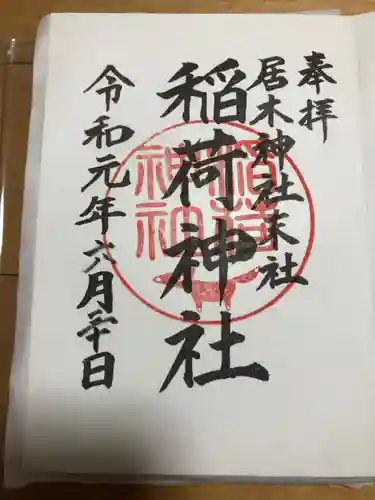 奉拝
居木神社末社
稲荷神社
令和元年六月二十日
稲荷
神社